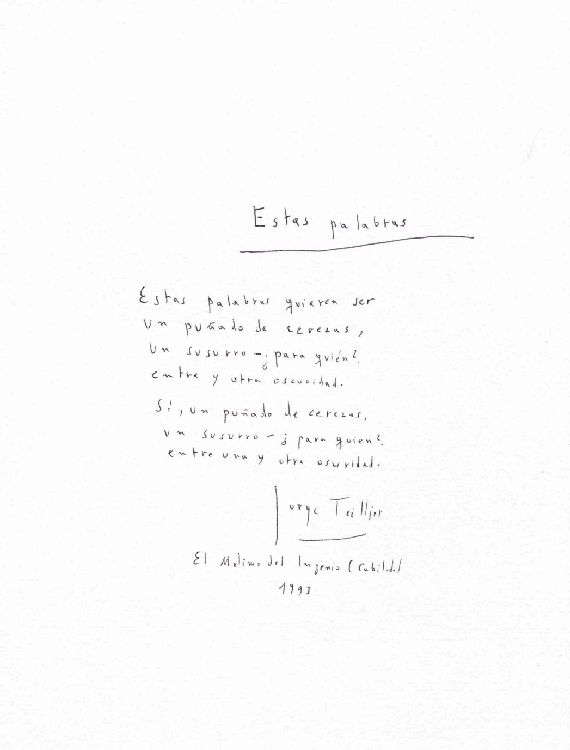 Estas palabras
Estas palabras quieren ser
un puñado de cerezas,
un susurro - ¿para quién?
entre y otra oscuridad.
Sí, un puñado de cerezas,
un susurro - ¿para quien?
entre una y otra oscuridad.
Jorge Teillier
El Molino del Ingenio (Cabildo)
1993